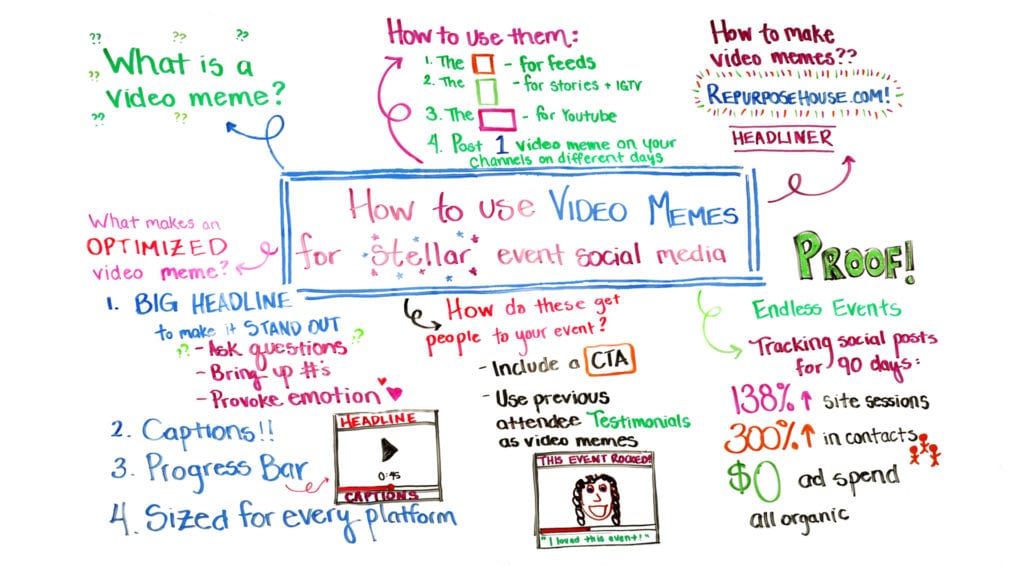 How to use VIDEO MEMES
for stellar event social media
?? ?? ??
What is a
??
video meme?
?? ??
How to use them:
1. The - for feeds
2. The - for stories + IGTV
3. The - for Youtube
4. Post 1 video meme on your
channels on different days
How to make
video memes??
REPURPOSEHOUSE.COM!
HEADLINER
What makes an
OPTIMIZED
video meme?
1. BIG HEADLINE
to make it STAND OUT
?? - Ask questions ??
- Bring up #'s
- Provoke emotion
2. Captions!!
3. Progress Bar
4. Sized for every platform
HEADLINE
0:45
CAPTIONS
How do these get
people to your event?
- Include a CTA
- Use previous
attendee Testimonials
as video memes
THIS EVENT ROCKED!
"I loved this event!"
PROOF!
Endless Events
Tracking social posts
for 90 days:
138% ↑ site sessions
300% ↑ in contacts
$0 ad spend
all organic